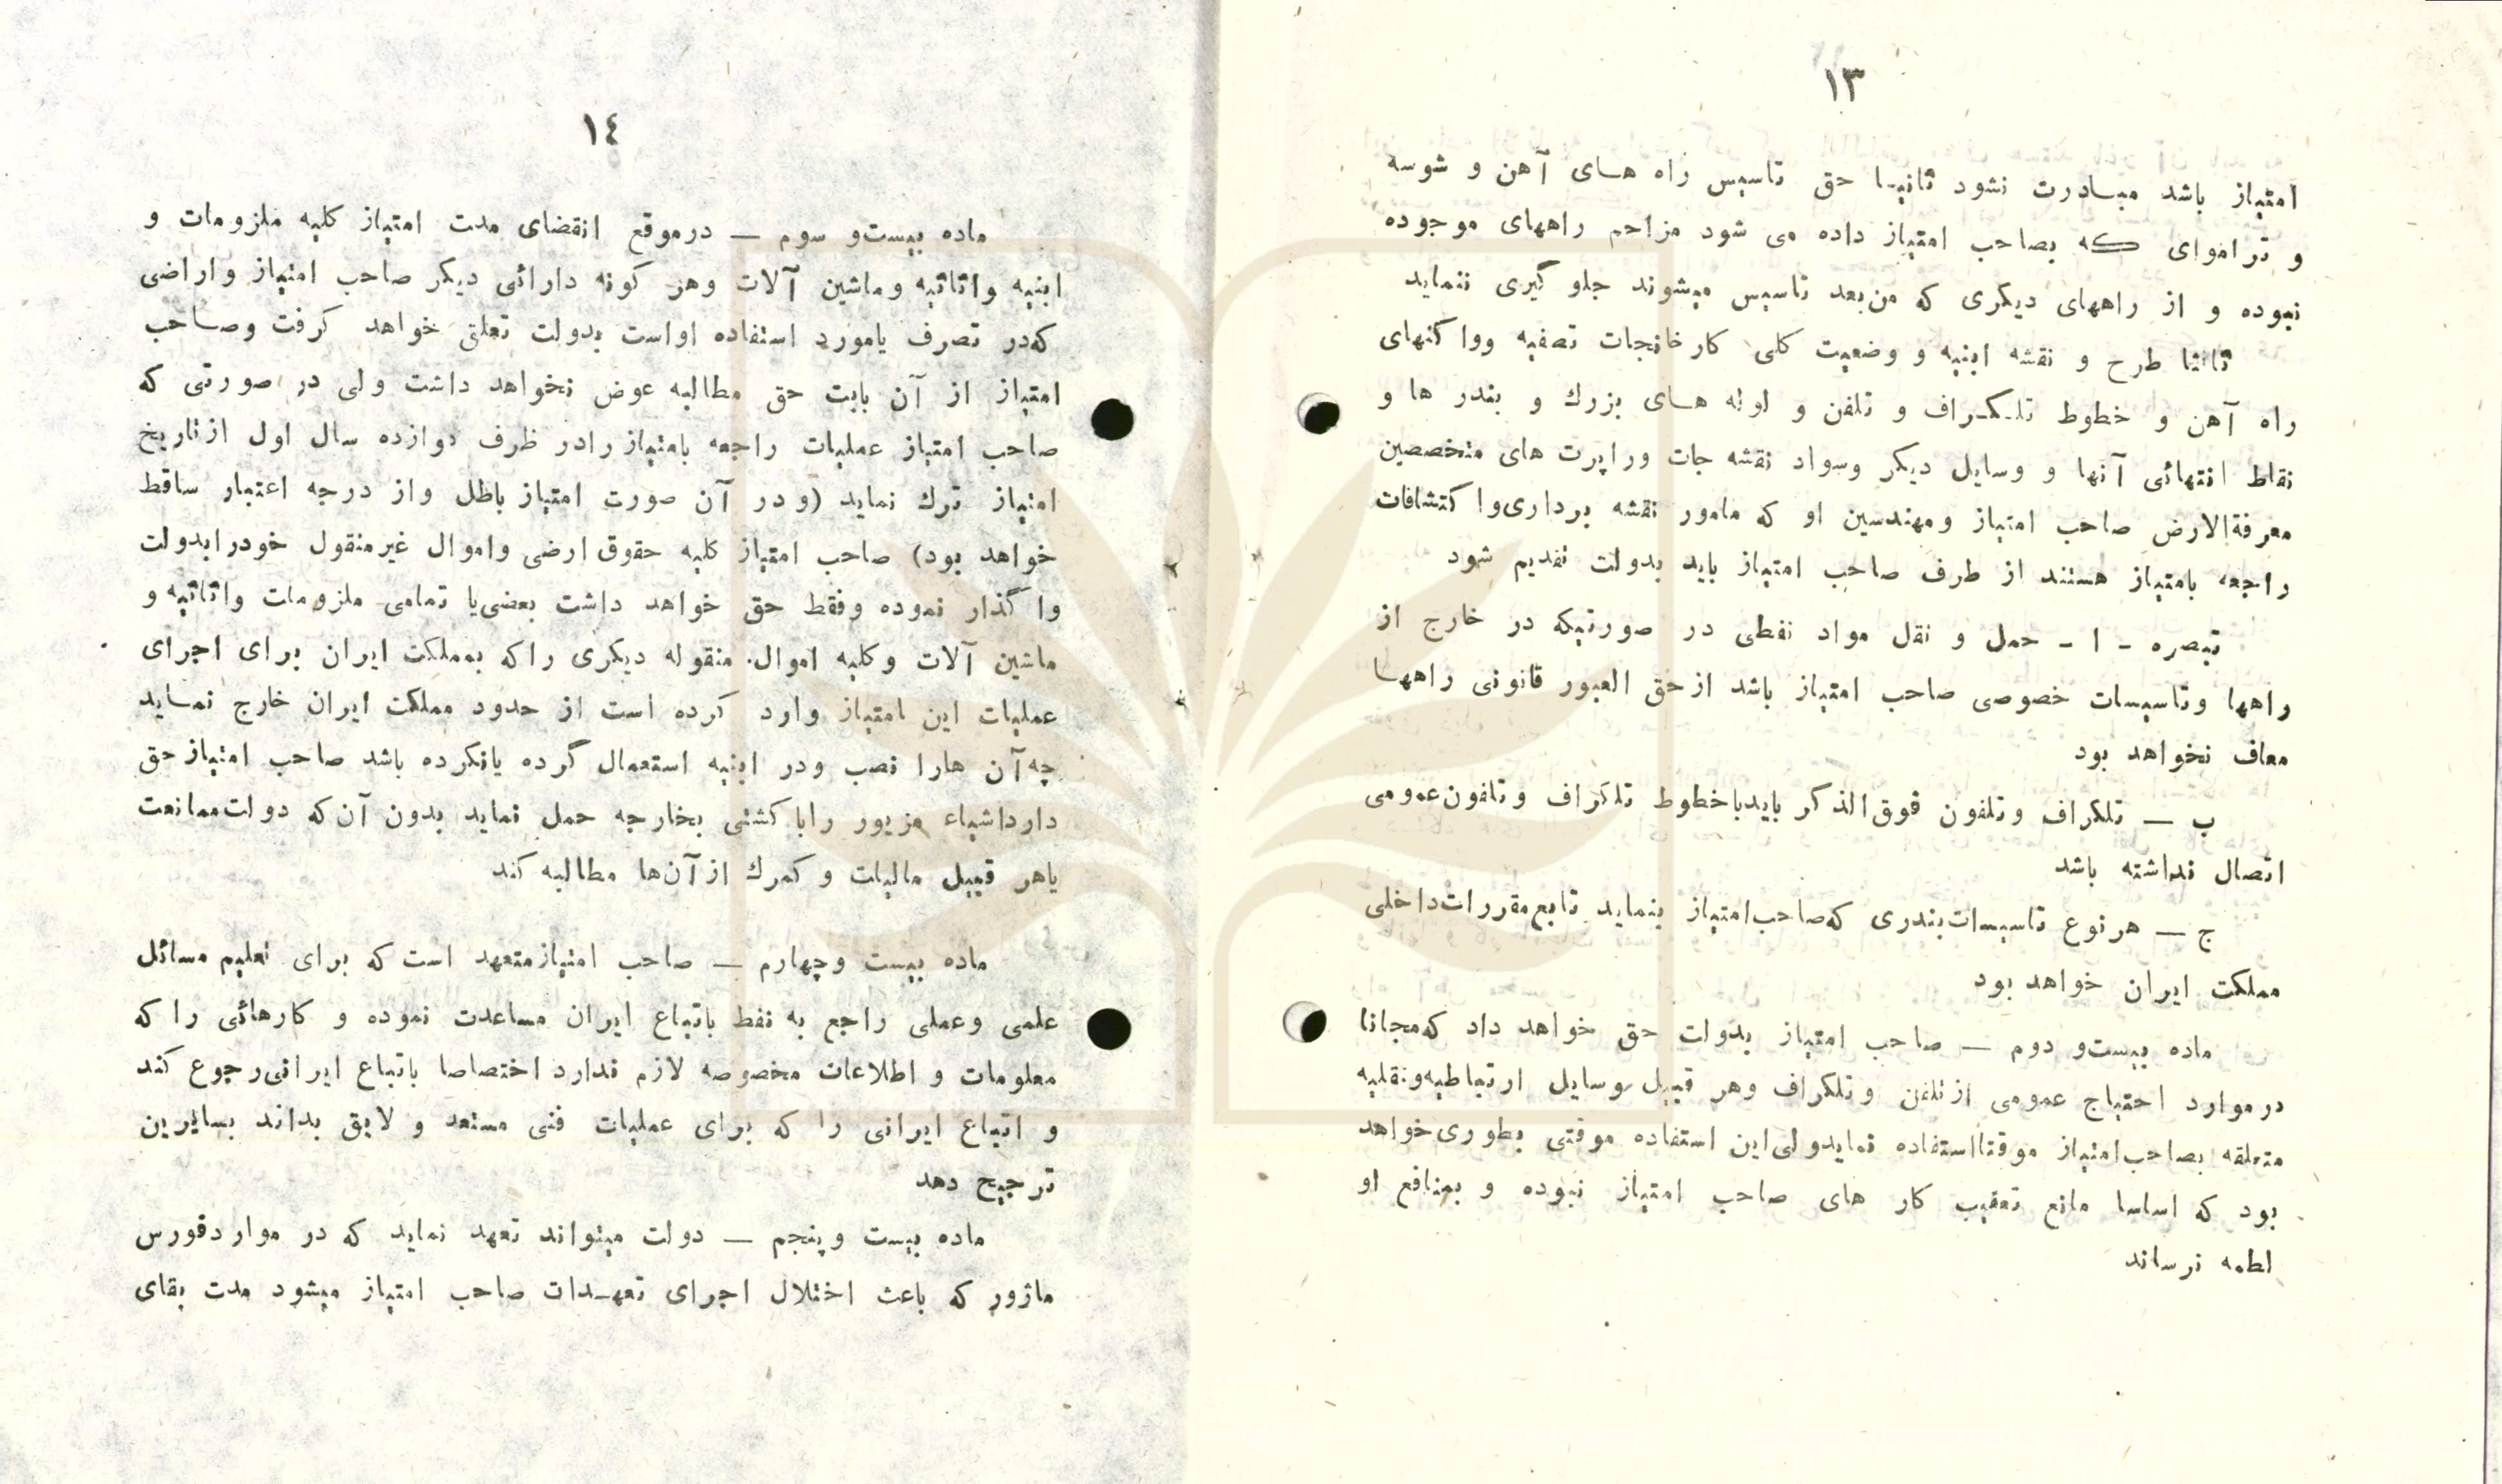 ۱۳
امتیاز باشد مبادرت نشود ثانیا حق تاسیس راه های آهن و شوسه
و تراموای که بصاحب امتیاز داده می شود مزاحم راههای موجوده
نبوده و از راههای دیگری که من‌بعد تاسیس میشوند جلو گیری ننماید
ثالثا طرح و نقشه ابنیه و وضعیت کلی کارخانجات تصفیه وواگنهای
راه آهن و خطوط تلگراف و تلفن و لوله های بزرك و بندر ها و
نقاط انتهائی آنها و وسایل دیگر وسواد نقشه جات وراپرت های متخصصین
معرفةالارض صاحب امتیاز ومهندسین او که مامور نقشه برداری‌واکتشافات
راجعه بامتیاز هستند از طرف صاحب امتیاز باید بدولت تقدیم شود
تبصره - ا - حمل و نقل مواد نفطی در صورتیکه در خارج از
راهها وتاسیسات خصوصی صاحب امتیاز باشد ازحق العبور قانونی راهها
معاف نخواهد بود
ب — تلگراف وتلفون فوق‌الذکر بایدباخطوط تلگراف وتلفون‌عمومی
اتصال نداشته باشد
ج — هرنوع تاسیسات‌بندری که‌صاحب‌امتیاز بنماید تابع‌مقررات‌داخلی
مملکت ایران خواهد بود
ماده بیست‌و دوم — صاحب امتیاز بدولت حق خواهد داد که‌مجانا
درموارد احتیاج عمومی ازتلفن وتلگراف وهر قبیل وسایل ارتباطیه‌ونقلیه
متعلقه بصاحب‌امتیاز موقتااستفاده نمایدولی‌این استفاده موقتی بطوری‌خواهد
بود که اساسا مانع تعقیب کار های صاحب امتیاز نبوده و بمنافع او
لطمه نرساند
۱٤
ماده بیست‌و سوم — درموقع انقضای مدت امتیاز کلیه ملزومات و
ابنیه واثاثیه وماشین آلات وهر گونه دارائی دیگر صاحب امتیاز واراضی
که‌در تصرف یامورد استفاده اواست بدولت تعلق خواهد گرفت وصاحب
امتیاز از آن بابت حق مطالبه عوض نخواهد داشت ولی در صورتی که
صاحب امتیاز عملیات راجعه بامتیاز رادر ظرف دوازده سال اول ازتاریخ
امتیاز ترك نماید (و در آن صورت امتیاز باطل واز درجه اعتبار ساقط
خواهد بود) صاحب امتیاز کلیه حقوق ارضی واموال غیرمنقول خودرابدولت
واگذار نموده وفقط حق خواهد داشت بعضی‌یا تمامی ملزومات واثاثیه و
ماشین آلات وکلیه اموال منقوله دیگری راکه بمملکت ایران برای اجرای
عملیات این امتیاز وارد کرده است از حدود مملکت ایران خارج نماید
چه‌آن هارا نصب ودر ابنیه استعمال گرده یانکرده باشد صاحب امتیازحق
دارداشیاء مزبور راباکشتی بخارجه حمل نماید بدون آن‌که دولت‌ممانعت
یاهر قبیل مالیات و گمرك ازآن‌ها مطالبه کند
ماده بیست وچهارم — صاحب امتیازمتعهد است که برای تعلیم مسائل
علمی وعملی راجع به نفط باتباع ایران مساعدت نموده و کارهائی را که
معلومات و اطلاعات مخصوصه لازم ندارد اختصاصا باتباع ایرانی‌رجوع کند
و اتباع ایرانی را که برای عملیات فنی مستعد و لایق بداند بسایرین
ترجیح دهد
ماده بیست وپنجم — دولت میتواند تعهد نماید که در مواردفورس
ماژور که باعث اختلال اجرای تعهدات صاحب امتیاز میشود مدت بقای